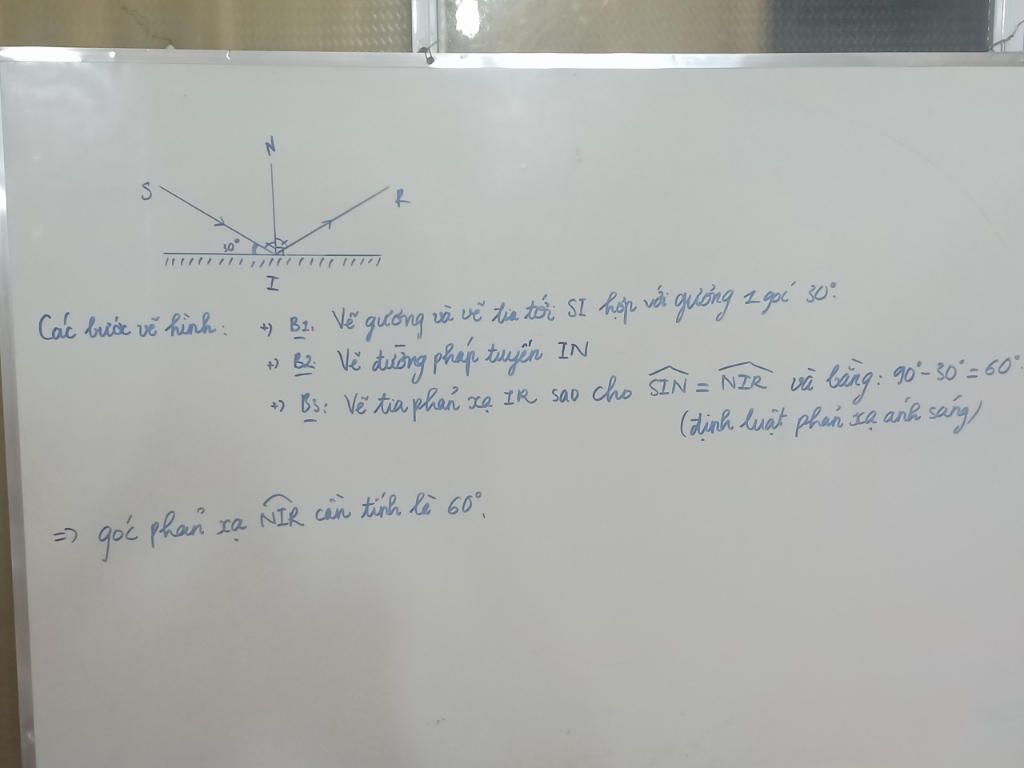 N
S
R
30°
I
Các bước vẽ hình: +) B1: Vẽ gương và vẽ tia tới SI hợp với gương 1 góc 30°.
+) B2: Vẽ đường pháp tuyến IN
+) B3: Vẽ tia phản xạ IR sao cho SIN = NIR và bằng: 90° - 30° = 60°
(định luật phản xạ ánh sáng)
=> góc phản xạ NIR cần tính là 60°.